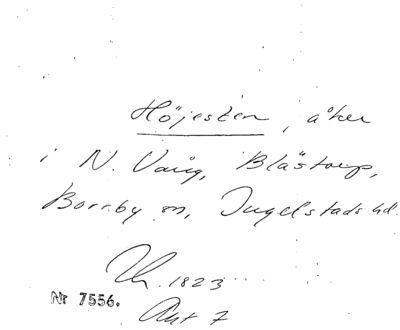 Höjesten, åker
i N. Vång, Blästorp,
Borrby sn, Ingelstads hd.
1823
Nr 7556.
Akt 7